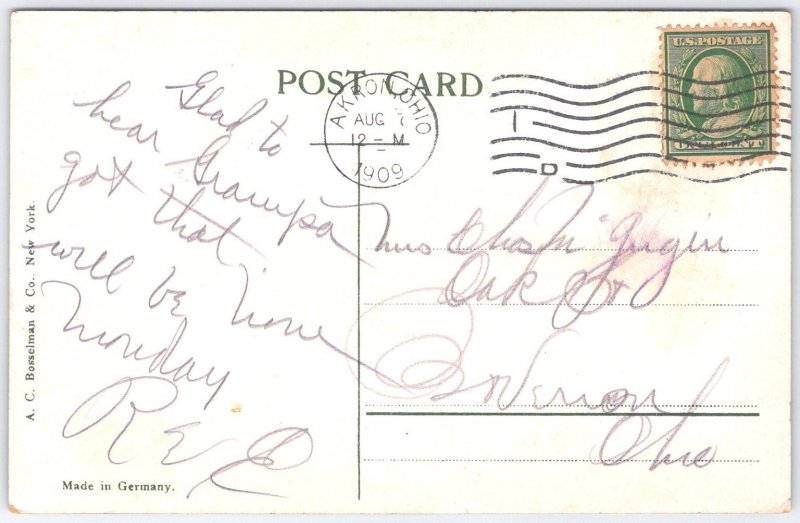 POST CARD
U.S. POSTAGE
ONE CENT
AKRON, OHIO
AUG 7
12 - M
1909
D
Glad to
hear Grampa
got that
will be home
Monday
R E C
Mrs Chas
Oak St
Vernon
Ohio
A. C. Bosselman & Co., New York.
Made in Germany.